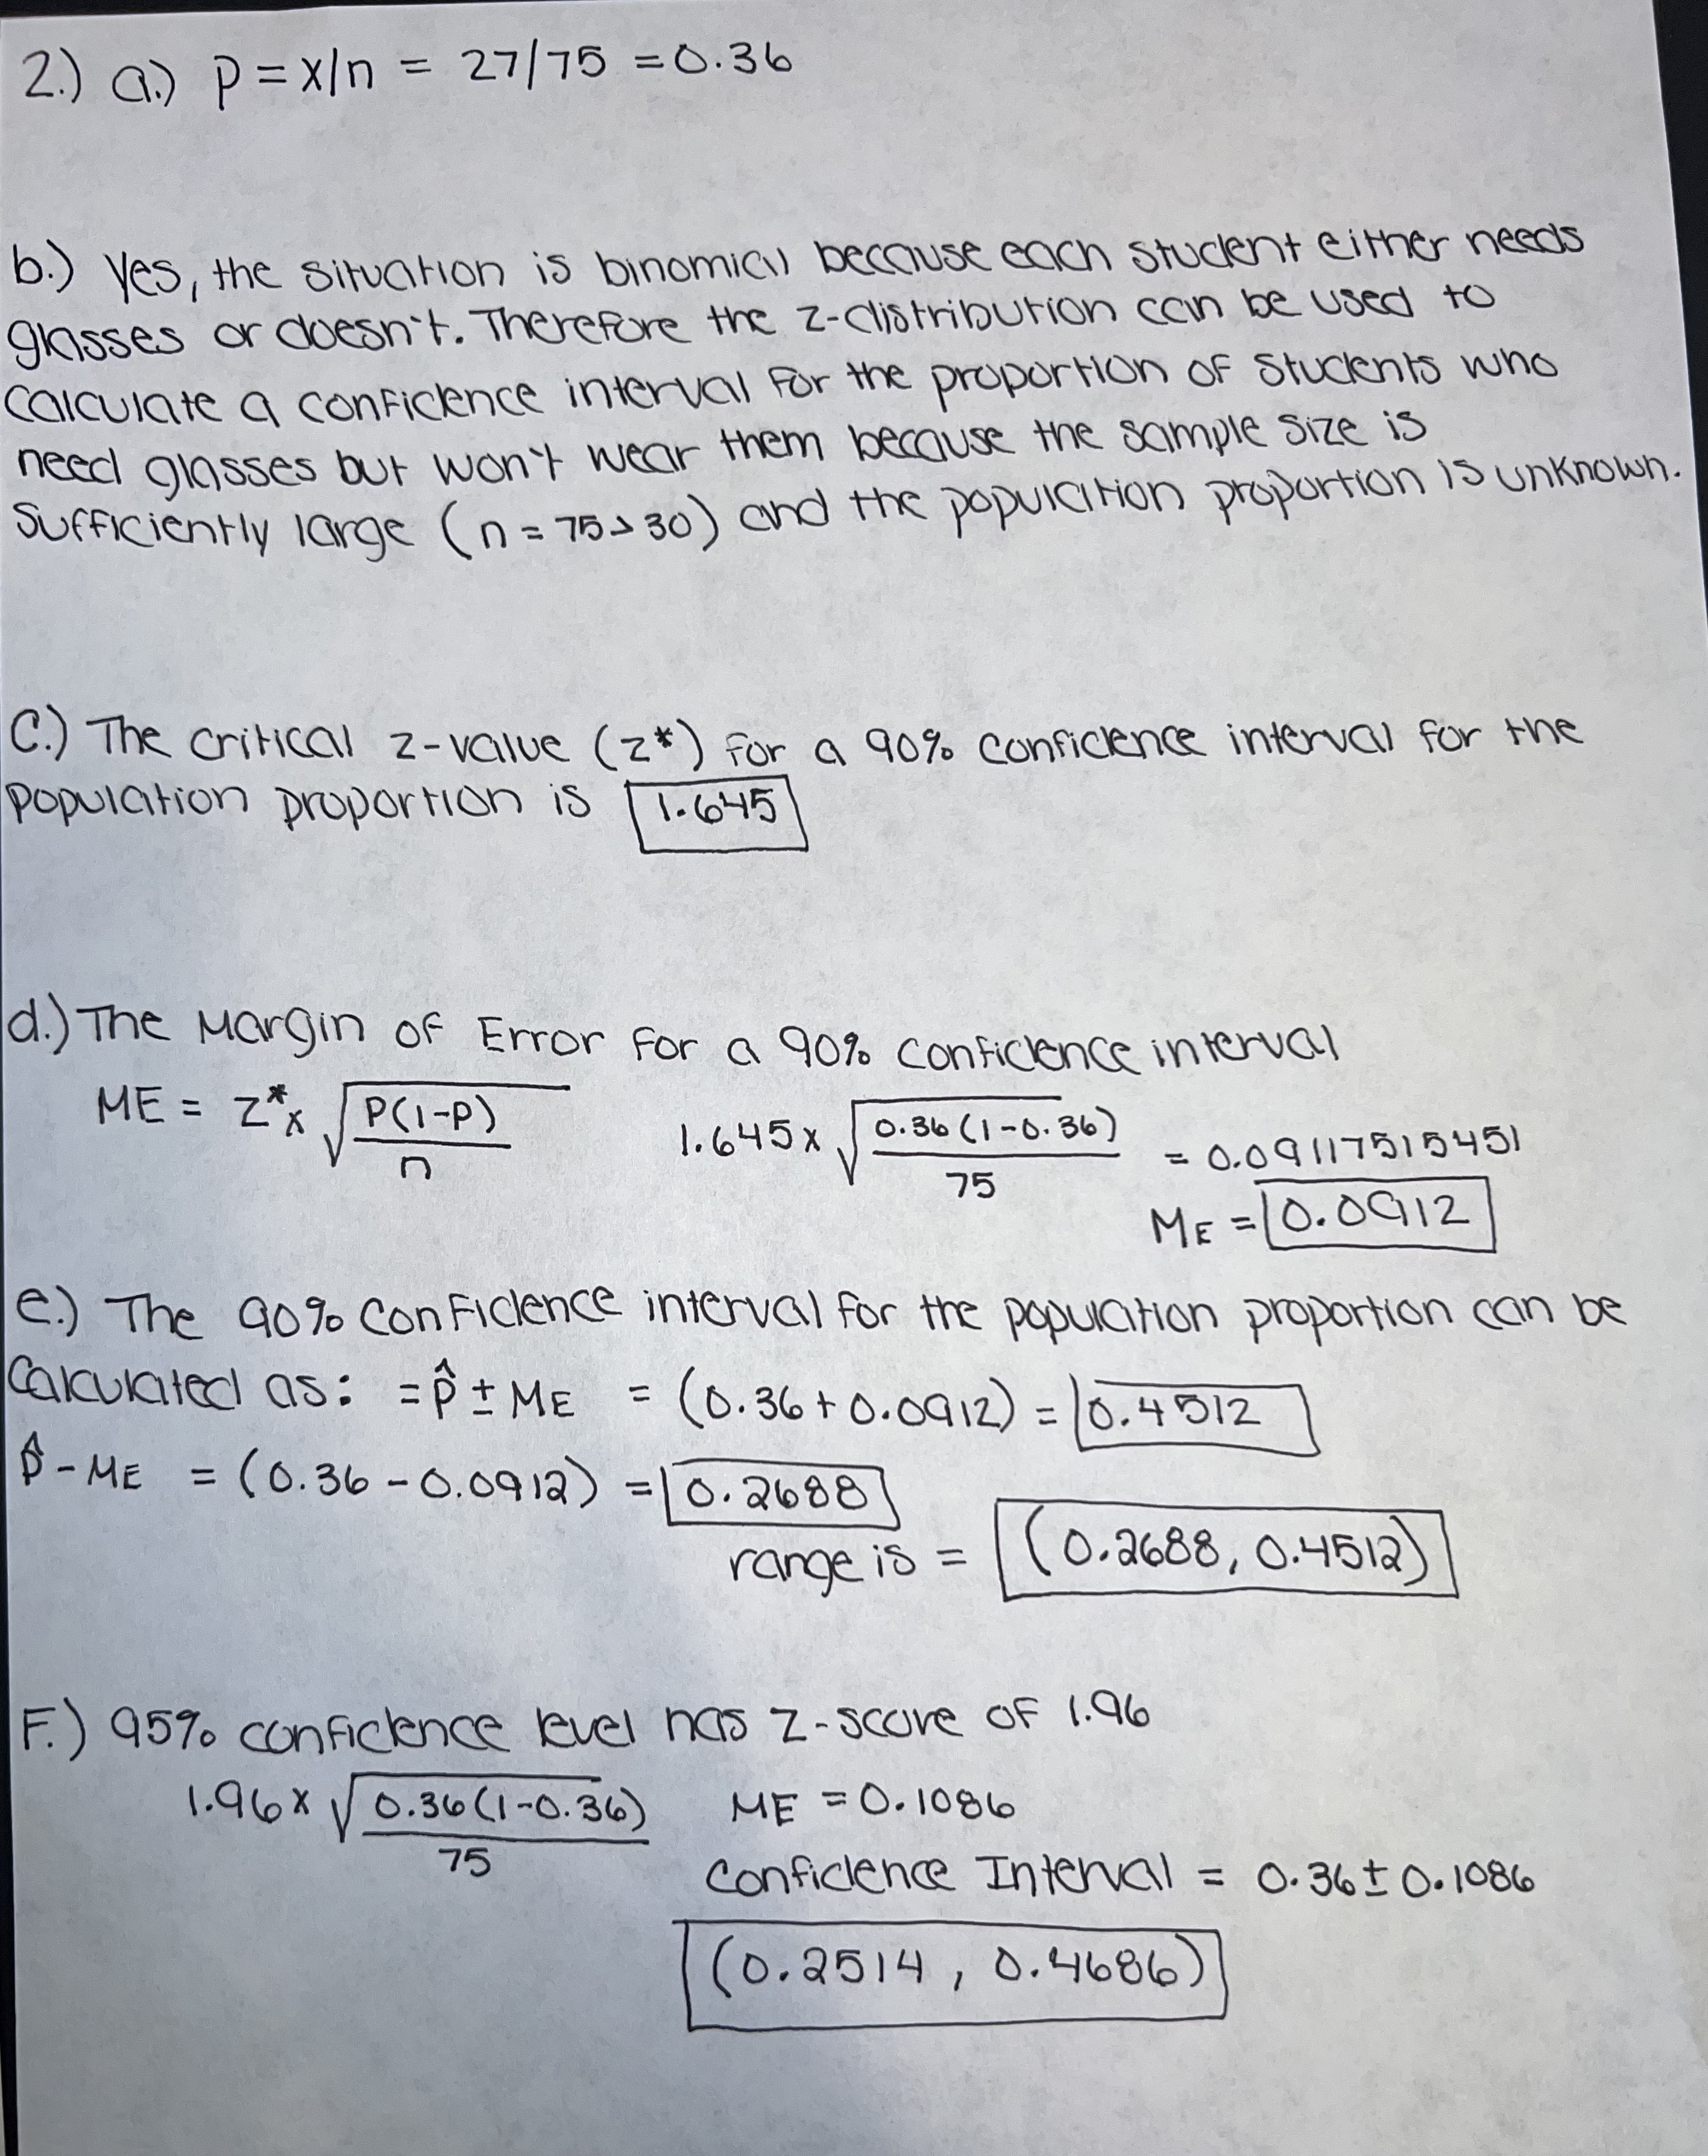 2.) a.) p = x/n = 27/75 = 0.36
b.) Yes, the situation is binomial because each student either needs
glasses or doesn't. Therefore the z-distribution can be used to
calculate a confidence interval for the proportion of students who
need glasses but won't wear them because the sample size is
sufficiently large (n = 75 > 30) and the population proportion is unknown.
C.) The critical z-value (z*) for a 90% confidence interval for the
population proportion is 1.645
d.) The Margin of Error for a 90% confidence interval
ME = Z* x √P(1-P)/n 1.645 x √0.36(1-0.36)/75 = 0.09117515451
ME = 0.0912
e.) The 90% confidence interval for the population proportion can be
calculated as: = p̂ ± ME = (0.36 + 0.0912) = 0.4512
p̂ - ME = (0.36 - 0.0912) = 0.2688
range is = (0.2688, 0.4512)
F.) 95% confidence level has z-score of 1.96
1.96 x √0.36(1-0.36)/75 ME = 0.1086
Confidence Interval = 0.36 ± 0.1086
(0.2514, 0.4686)